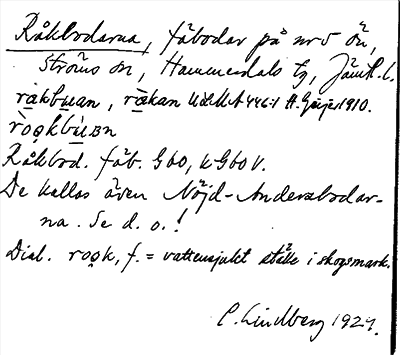 Råkbodarna, fäbodar på nr 5 Ön,
Ströms sn, Hammerdals tg, Jämtl. l.
råkbuan, råkan ULMA 446:1 H. Geijer 1910.
rọkbùɐn
Råkbod. fäb. G60, KG60V.
De kallas även Nöjd-Andersbodar-
na. Se d. o.!
Dial. rọk, f. = vattensjukt ställe i skogsmark.
C. Lindberg 1927.